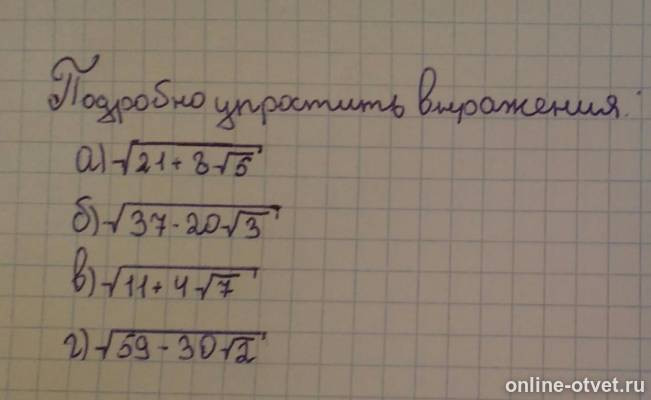 Подробно упростить выражения.
а) √21 + 8√5
б) √37 - 20√3
в) √11 + 4√7
г) √59 - 30√2
online-otvet.ru